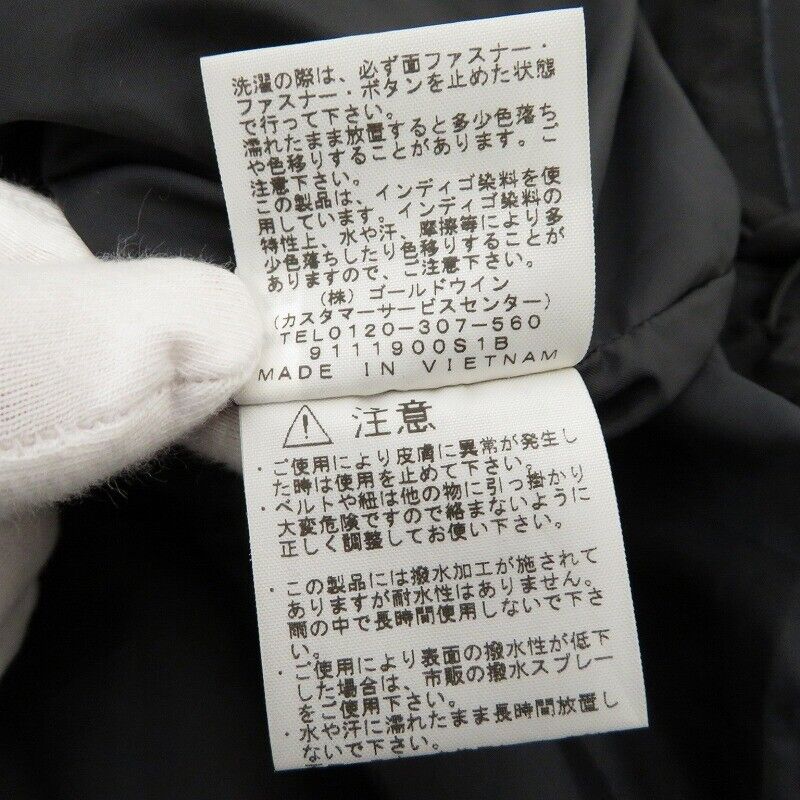 洗濯の際は、必ず面ファスナー・
ファスナー・ボタンを止めた状態
で行って下さい。
濡れたまま放置すると多少色落ち
や色移りすることがあります。ご
注意下さい。
この製品は、インディゴ染料を使
用しています。インディゴ染料の
特性上、水や汗、摩擦等により多
少色落ちしたり色移りすることが
ありますので、ご注意下さい。
(株) ゴールドウイン
(カスタマーサービスセンター)
TEL0120-307-560
9111900S1B
MADE IN VIETNAM
注意
・ご使用により皮膚に異常が発生し
た時は使用を止めて下さい。
・ベルトや紐は他の物に引っ掛かり
大変危険ですので絡まないように
正しく調整してお使い下さい。
・この製品には撥水加工が施されて
ありますが耐水性はありません。
雨の中で長時間使用しないで下さ
い。
・ご使用により表面の撥水性が低下
した場合は、市販の撥水スプレー
をご使用下さい。
・水や汗に濡れたまま長時間放置し
ないで下さい。